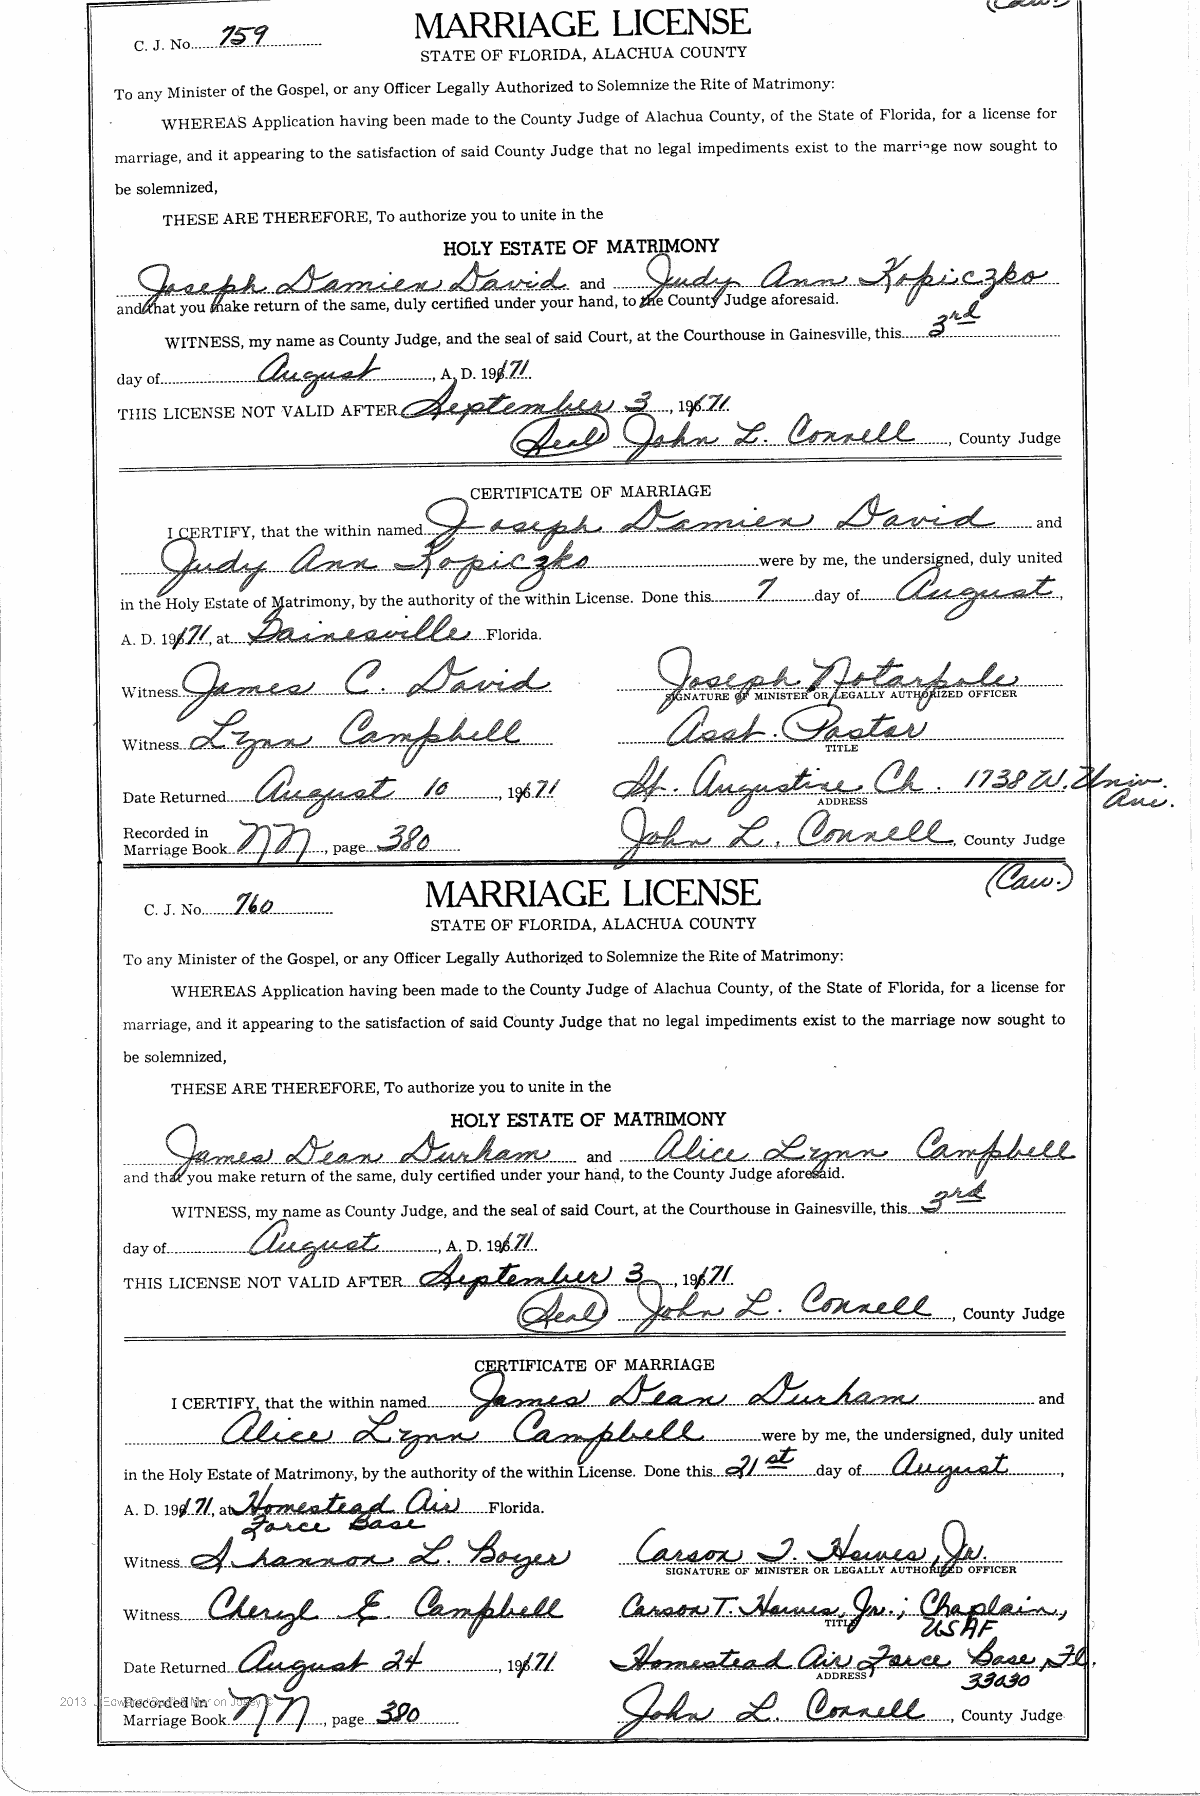 (Caw.)
C. J. No. 759
MARRIAGE LICENSE
STATE OF FLORIDA, ALACHUA COUNTY
To any Minister of the Gospel, or any Officer Legally Authorized to Solemnize the Rite of Matrimony:
WHEREAS Application having been made to the County Judge of Alachua County, of the State of Florida, for a license for
marriage, and it appearing to the satisfaction of said County Judge that no legal impediments exist to the marriage now sought to
be solemnized,
THESE ARE THEREFORE, To authorize you to unite in the
HOLY ESTATE OF MATRIMONY
Joseph Damien David and Judy Ann Kopiczko
and that you make return of the same, duly certified under your hand, to the County Judge aforesaid.
WITNESS, my name as County Judge, and the seal of said Court, at the Courthouse in Gainesville, this 3rd
day of August, A. D. 1971.
THIS LICENSE NOT VALID AFTER September 3, 1971.
(Seal) John L. Connell, County Judge
CERTIFICATE OF MARRIAGE
I CERTIFY, that the within named Joseph Damien David and
Judy Ann Kopiczko were by me, the undersigned, duly united
in the Holy Estate of Matrimony, by the authority of the within License. Done this 7 day of August,
A. D. 1971, at Gainesville Florida.
Witness James C. David Joseph Notarpole
SIGNATURE OF MINISTER OR LEGALLY AUTHORIZED OFFICER
Witness Lynn Campbell Asst. Pastor
TITLE
Date Returned August 10, 1971 St. Augustine Ch. 1738 W. Univ. Ave.
ADDRESS
Recorded in
Marriage Book NN, page 380 John L. Connell, County Judge
(Caw.)
C. J. No. 760
MARRIAGE LICENSE
STATE OF FLORIDA, ALACHUA COUNTY
To any Minister of the Gospel, or any Officer Legally Authorized to Solemnize the Rite of Matrimony:
WHEREAS Application having been made to the County Judge of Alachua County, of the State of Florida, for a license for
marriage, and it appearing to the satisfaction of said County Judge that no legal impediments exist to the marriage now sought to
be solemnized,
THESE ARE THEREFORE, To authorize you to unite in the
HOLY ESTATE OF MATRIMONY
James Dean Durham and Alice Lynn Campbell
and that you make return of the same, duly certified under your hand, to the County Judge aforesaid.
WITNESS, my name as County Judge, and the seal of said Court, at the Courthouse in Gainesville, this 3rd
day of August, A. D. 1971.
THIS LICENSE NOT VALID AFTER September 3, 1971.
(Seal) John L. Connell, County Judge
CERTIFICATE OF MARRIAGE
I CERTIFY, that the within named James Dean Durham and
Alice Lynn Campbell were by me, the undersigned, duly united
in the Holy Estate of Matrimony, by the authority of the within License. Done this 21st day of August,
A. D. 1971, at Homestead Air Florida.
Force Base
Witness Shannon L. Boyer Carson T. Hawes, Jr.
SIGNATURE OF MINISTER OR LEGALLY AUTHORIZED OFFICER
Witness Cheryl E. Campbell Carson T. Hawes, Jr.; Chaplain,
TITLE USAF
Date Returned August 24, 1971 Homestead Air Force Base, Fl.
ADDRESS 33030
Recorded in
Marriage Book NN, page 380 John L. Connell, County Judge
2013